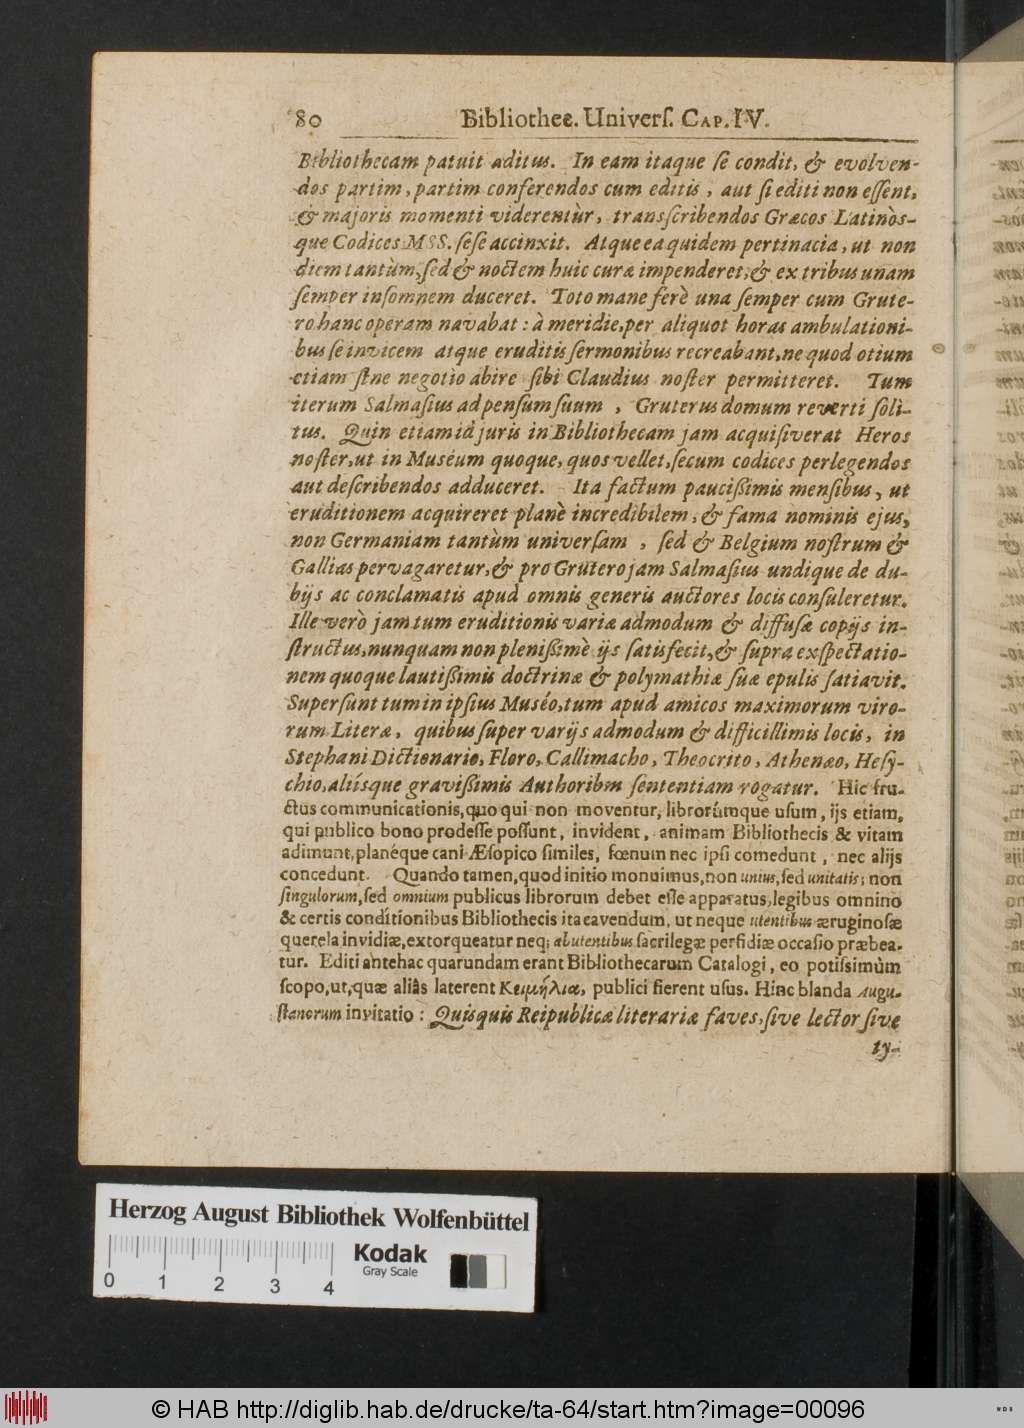 80 Bibliothec. Univerſ. CAP. IV.
Bibliothecam patuit aditus. In eam itaque ſe condit, & evolven-
dos partim, partim conferendos cum editis, aut ſi editi non eſſent,
& majoris momenti viderentùr, transſcribendos Græcos Latinòs-
que Codices MSS. ſeſe accinxit. Atque ea quidem pertinacia, ut non
diem tantùm, ſed & noctem huic curæ impenderet, & ex tribus unam
ſemper inſomnem duceret. Toto mane ferè una ſemper cum Grute-
ro hanc operam navabat: à meridie, per aliquot horas ambulationi-
bus ſe invicem atque eruditis ſermonibus recreabant, ne quod otium
etiam ſine negotio abire ſibi Claudius noſter permitteret. Tum
iterum Salmaſius ad penſum ſuum, Gruterus domum reverti ſoli-
tus. Quin etiam id juris in Bibliothecam jam acquiſiverat Heros
noſter, ut in Muséum quoque, quos vellet, ſecum codices perlegendos
aut deſcribendos adduceret. Ita factum pauciſſimis menſibus, ut
eruditionem acquireret planè incredibilem, & fama nominis ejus,
non Germaniam tantùm univerſam, ſed & Belgium noſtrum &
Gallias pervagaretur, & pro Grutero jam Salmaſius undique de du-
bijs ac conclamatis apud omnis generis auctores locis conſuleretur.
Ille verò jam tum eruditionis variæ admodum & diffuſæ copijs in-
ſtructus, nunquam non pleniſſimè ijs ſatisfecit, & ſupra exſpectatio-
nem quoque lautiſſimis doctrinæ & polymathiæ ſuæ epulis ſatiavit.
Superſunt tum in ipſius Muséo, tum apud amicos maximorum viro-
rum Literæ, quibus ſuper varijs admodum & difficillimis locis, in
Stephani Dictionario, Floro, Callimacho, Theocrito, Athenæo, Heſy-
chio, aliísque graviſſimis Authoribus ſententiam rogatur. Hic fru-
ctus communicationis, quo qui non moventur, librorúmque uſum, ijs etiam,
qui publico bono prodeſſe poſſunt, invident, animam Bibliothecis & vitam
adimunt, planéque cani Æſopico ſimiles, fœnum nec ipſi comedunt, nec alijs
concedunt. Quando tamen, quod initio monuimus, non unius, ſed unitatis; non
ſingulorum, ſed omnium publicus librorum debet eſſe apparatus, legibus omnino
& certis conditionibus Bibliothecis ita cavendum, ut neque utentibus æruginoſæ
querela invidiæ, extorqueatur neq; abutentibus ſacrilegæ perfidiæ occaſio præbea-
tur. Editi antehac quarundam erant Bibliothecarum Catalogi, eo potiſsimùm
ſcopo, ut, quæ aliàs laterent Κειμήλια, publici fierent uſus. Hinc blanda Augu-
ſtanorum invitatio: Quisquis Reipublicæ literariæ faves, ſive lector ſive
ty-
Herzog August Bibliothek Wolfenbüttel
Kodak
Gray Scale
0 1 2 3 4
© HAB http://diglib.hab.de/drucke/ta-64/start.htm?image=00096